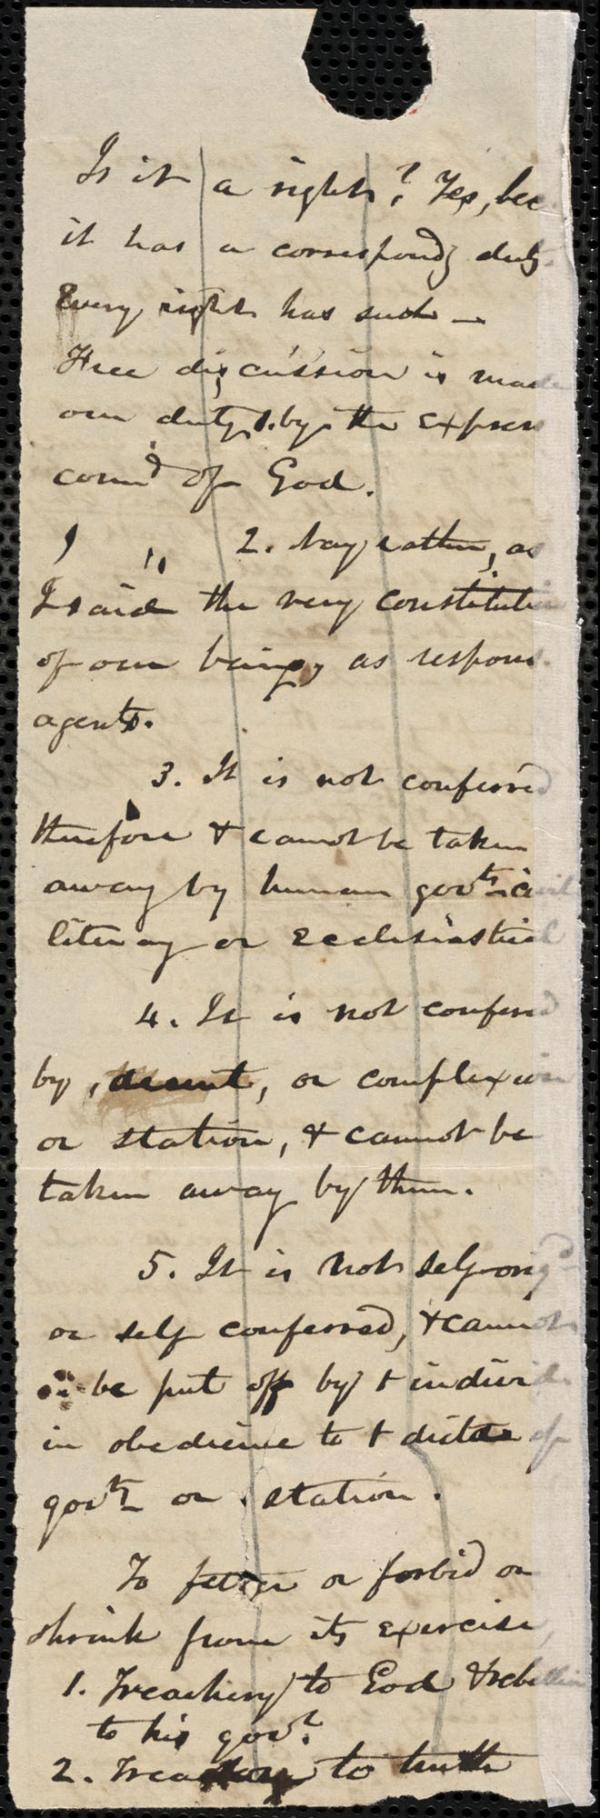 Is it a right? Yes, bec
it has a correspondg duty.
Every right has such —
Free discussion is made
our duty, 1. by the express
comd of God.
" 2. Nay rather, as
I said the very constitution
of our being, as respons.
agents.
3. It is not conferred
therefore & cannot be taken
away by human govts civil
literary or ecclesiastical
4. It is not conferred
by, descent, or complexion
or station, & cannot be
taken away by them.
5. It is not self-origd
or self conferred, & cannot
be put off by t individ
in obedience to t dictate of
govt or station.
To fetter or forbid or
shrink from its exercise,
1. Treachery to God & rebellion
to his govt.
2. Treachery to truth